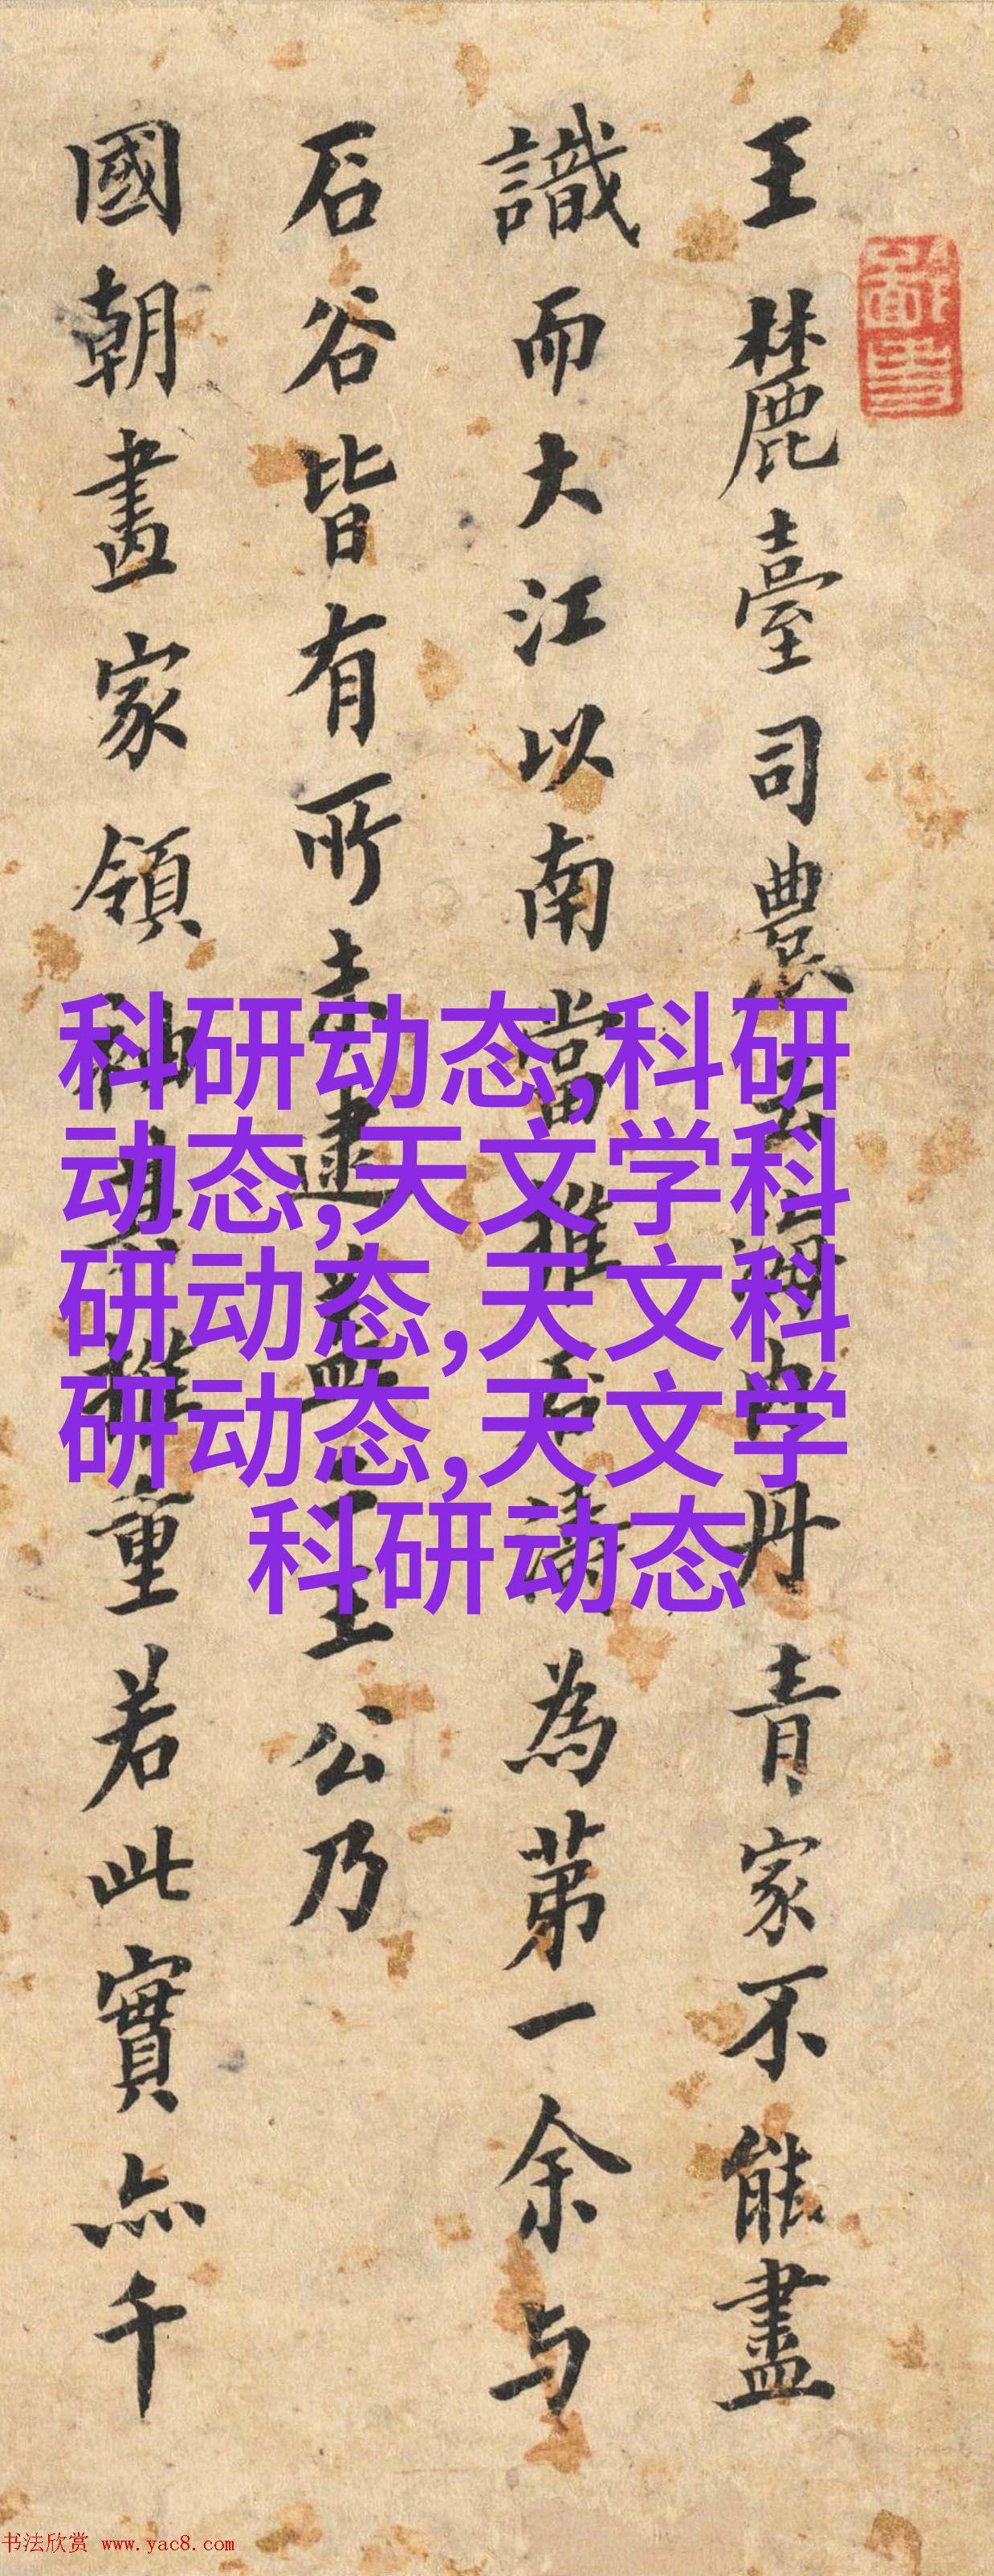 王麓臺司農云海内丹青家不能盡
識而大江以南當推石濤為第一余与
石谷皆有所未逮盖王公乃
國朝畫家領袖其推重若此實亦千
科研动态,科研
动态,天文学科
研动态,天文科
研动态,天文学
科研动态
书法欣赏 www.yac8.com